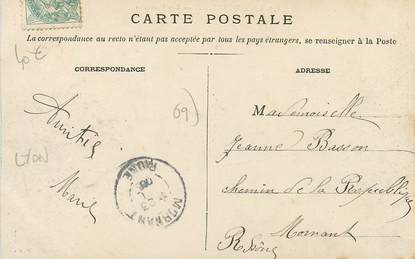 CARTE POSTALE
La correspondance au recto n'étant pas acceptée par tous les pays étrangers, se renseigner à la Poste
CORRESPONDANCE
ADRESSE
40 €
69)
Amitiés
LYON
Marie
MORNANT
RHONE
Mademoiselle
Jeanne Basson
chemin de la République
Mornant
Rhône